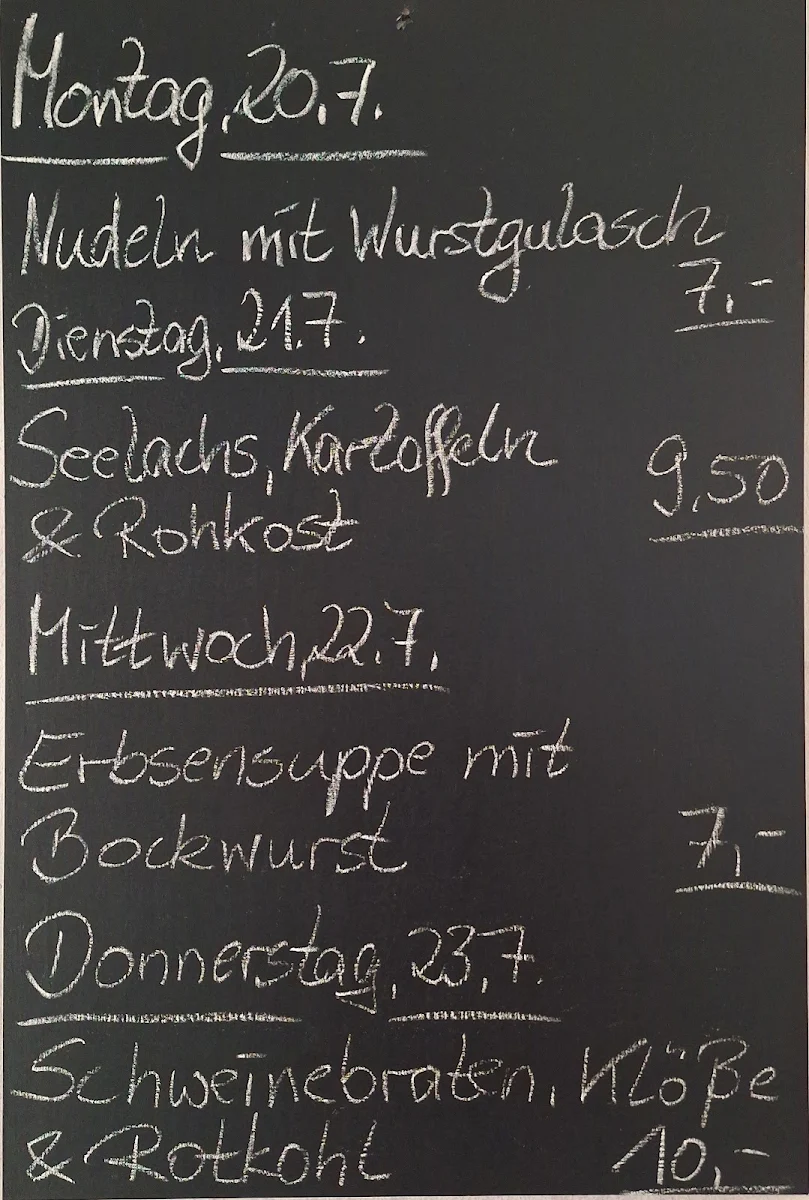 Montag, 20.7.
Nudeln mit Wurstgulasch
7,-
Dienstag, 21.7.
Seelachs, Kartoffeln
9,50
& Rohkost
Mittwoch, 22.7.
Erbsensuppe mit
Bockwurst 7,-
Donnerstag, 23.7.
Schweinebraten, Klöße
& Rotkohl 10,-